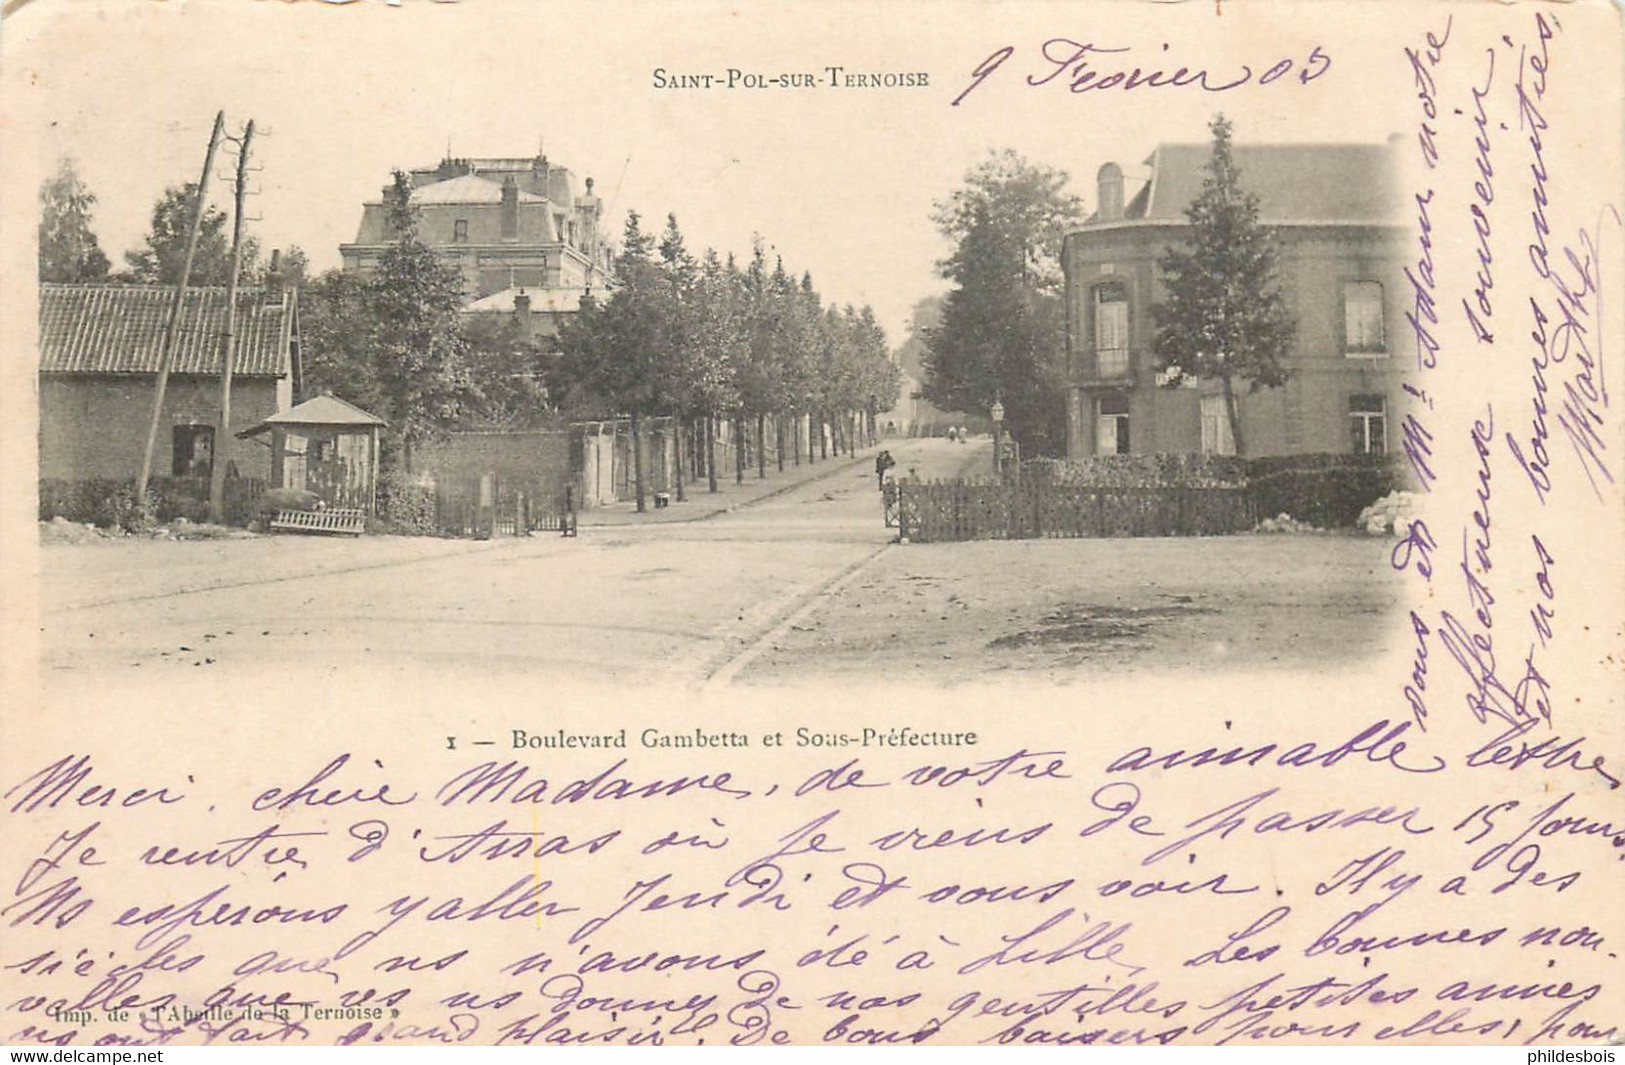 SAINT-POL-SUR-TERNOISE
9 Fevrier 03
1 — Boulevard Gambetta et Sous-Préfecture
Merci, chère Madame, de votre aimable lettre
Je rentre d'Arras où je viens de passer 15 jours.
Ns espérons y aller Jeudi et vous voir. Il y a des
siècles que ns n'avons été à Lille. Les bonnes nou-
velles que vs ns donnez de nos gentilles petites amies
ns ont fait grand plaisir. De bons baisers pour elles, pour
vous et Mr Adam notre
affectueux souvenir
et nos bonnes amitiés,
Marthe
Imp. de « l'Abeille de la Ternoise »
phildesbois